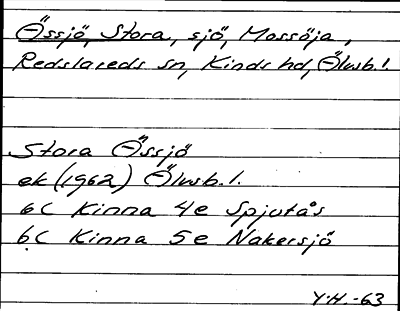 Össjö, Stora, sjö, Mossöja,
Redslareds sn, Kinds hd, Älvsb. l.
Stora Össjö
ek (1962) Älvsb. l.
6C Kinna 4e Spjutås
6C Kinna 5e Nakersjö
Y.H. -63